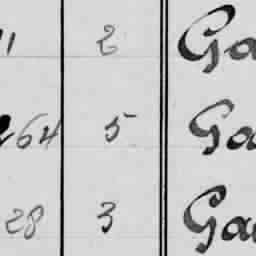 2 Ga
264 5 Ga
28 3 Ga